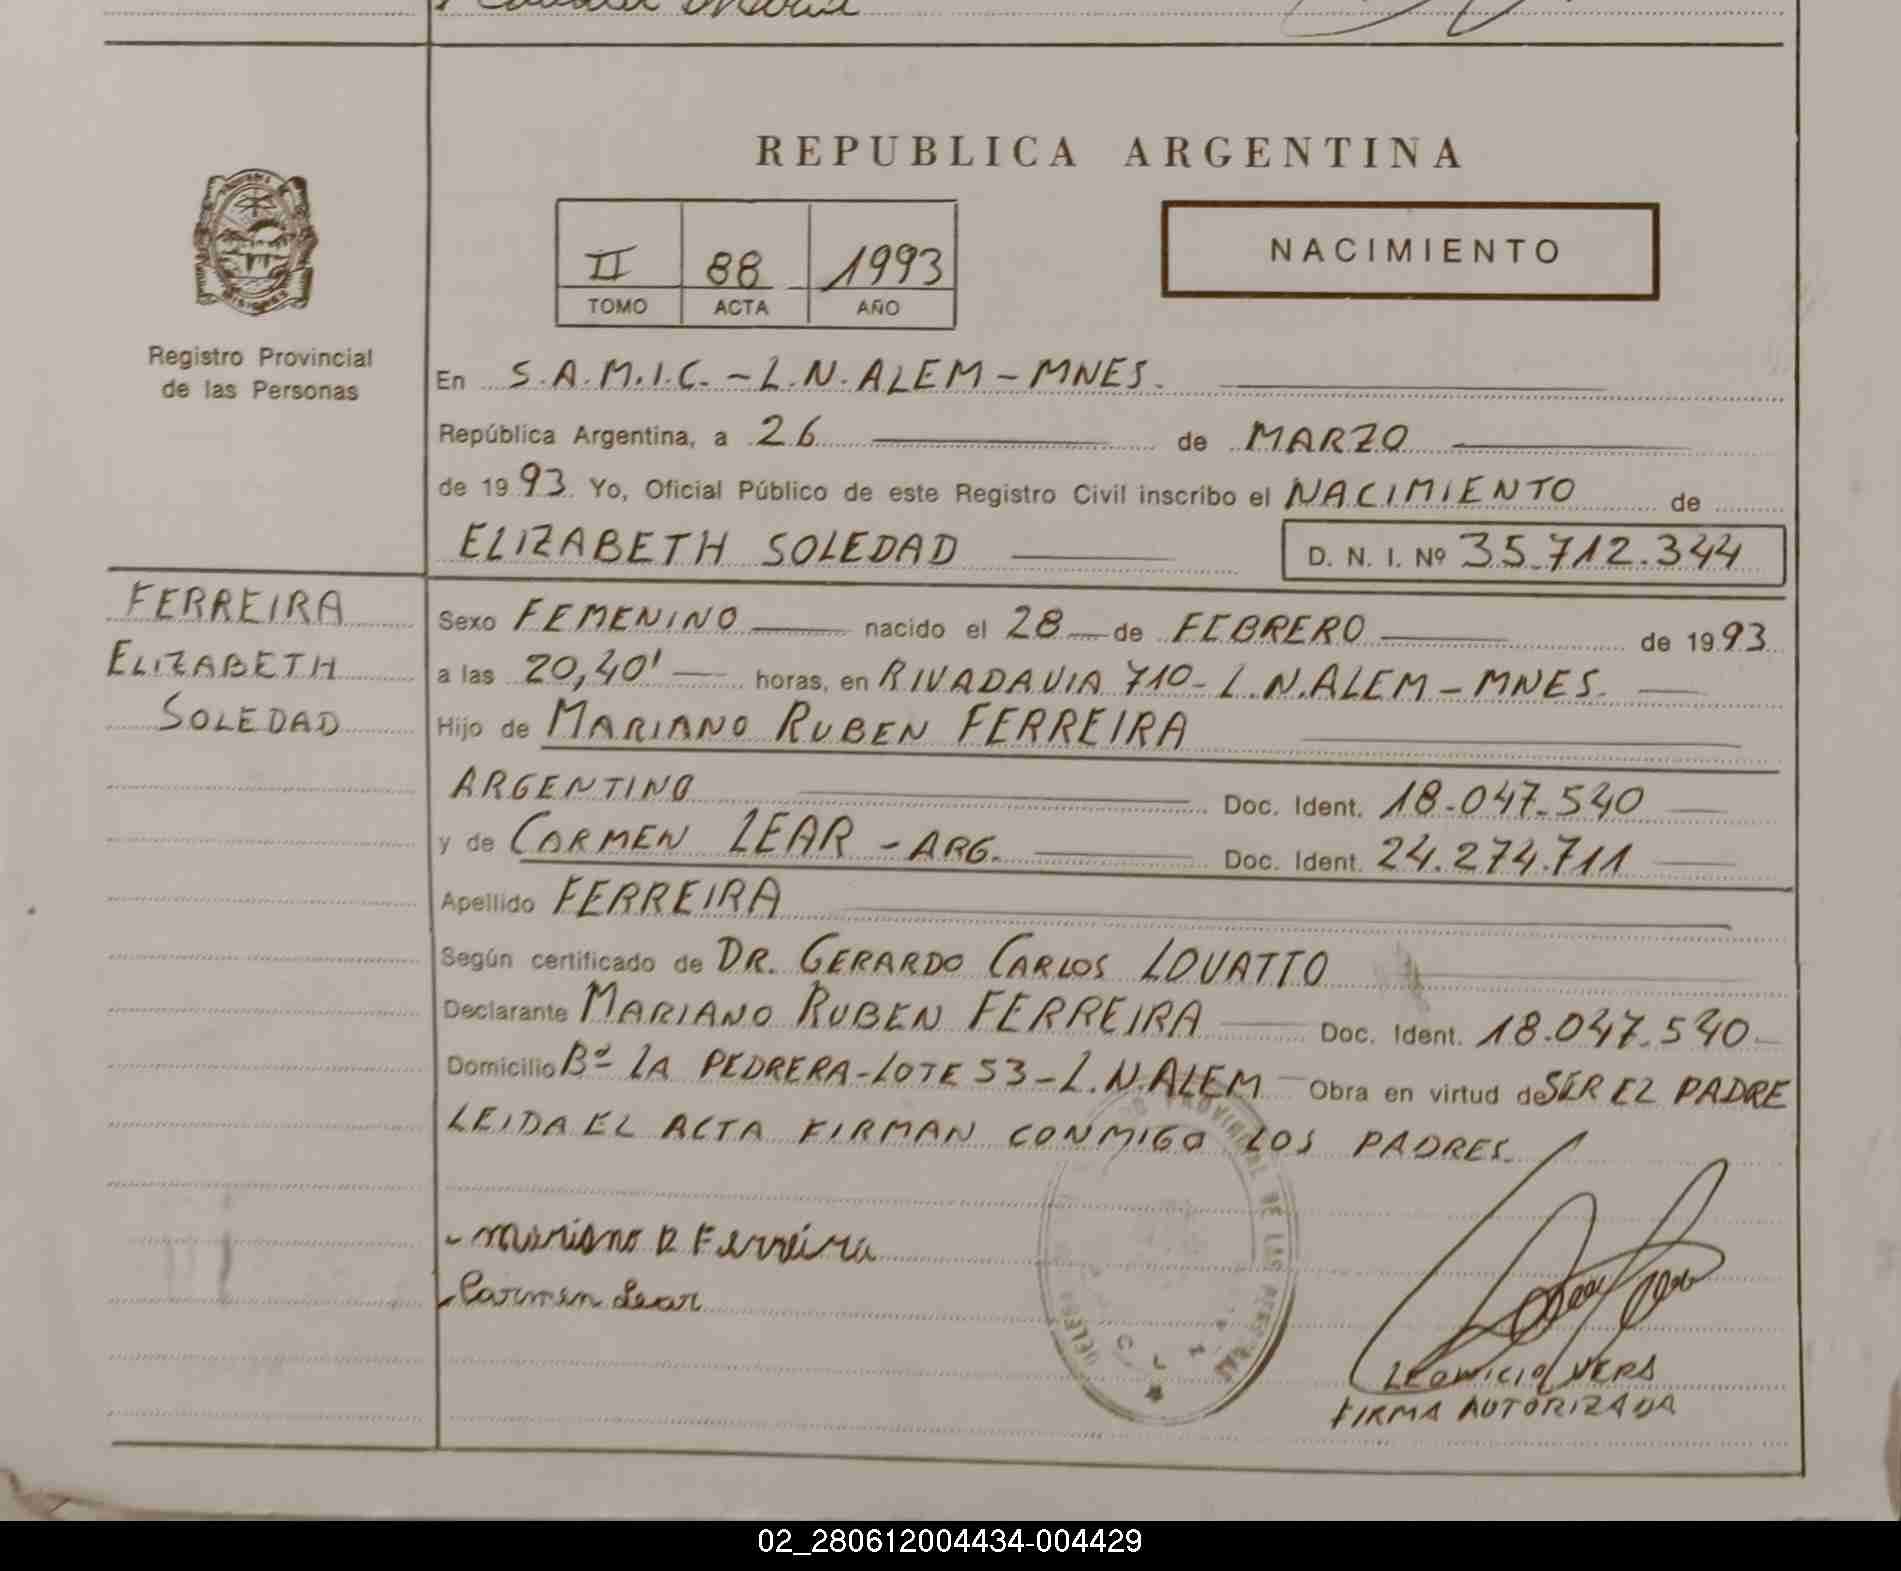 REPUBLICA ARGENTINA
II 88 1993
TOMO ACTA AÑO
NACIMIENTO
Registro Provincial
de las Personas
En S.A.M.I.C. - L.N. ALEM - MNES.
República Argentina, a 26 de MARZO
de 1993. Yo, Oficial Público de este Registro Civil inscribo el NACIMIENTO de
ELIZABETH SOLEDAD D. N. I. Nº 35.712.344
FERREIRA
ELIZABETH
SOLEDAD
Sexo FEMENINO nacido el 28 de FEBRERO de 1993
a las 20,40' horas, en RIVADAVIA 710 - L.N. ALEM - MNES.
Hijo de MARIANO RUBEN FERREIRA
ARGENTINO Doc. Ident. 18.047.540
y de CARMEN LEAR - ARG. Doc. Ident. 24.274.711
Apellido FERREIRA
Según certificado de DR. GERARDO CARLOS LOVATTO
Declarante MARIANO RUBEN FERREIRA Doc. Ident. 18.047.540
Domicilio Bº LA PEDRERA - LOTE 53 - L.N. ALEM Obra en virtud de SER EL PADRE
LEIDA EL ACTA FIRMAN CONMIGO LOS PADRES.
Mariano R Ferreira
Carmen Lear
PROVINCIAL DE LAS PERSONAS
FIRMA AUTORIZADA
02_280612004434-004429